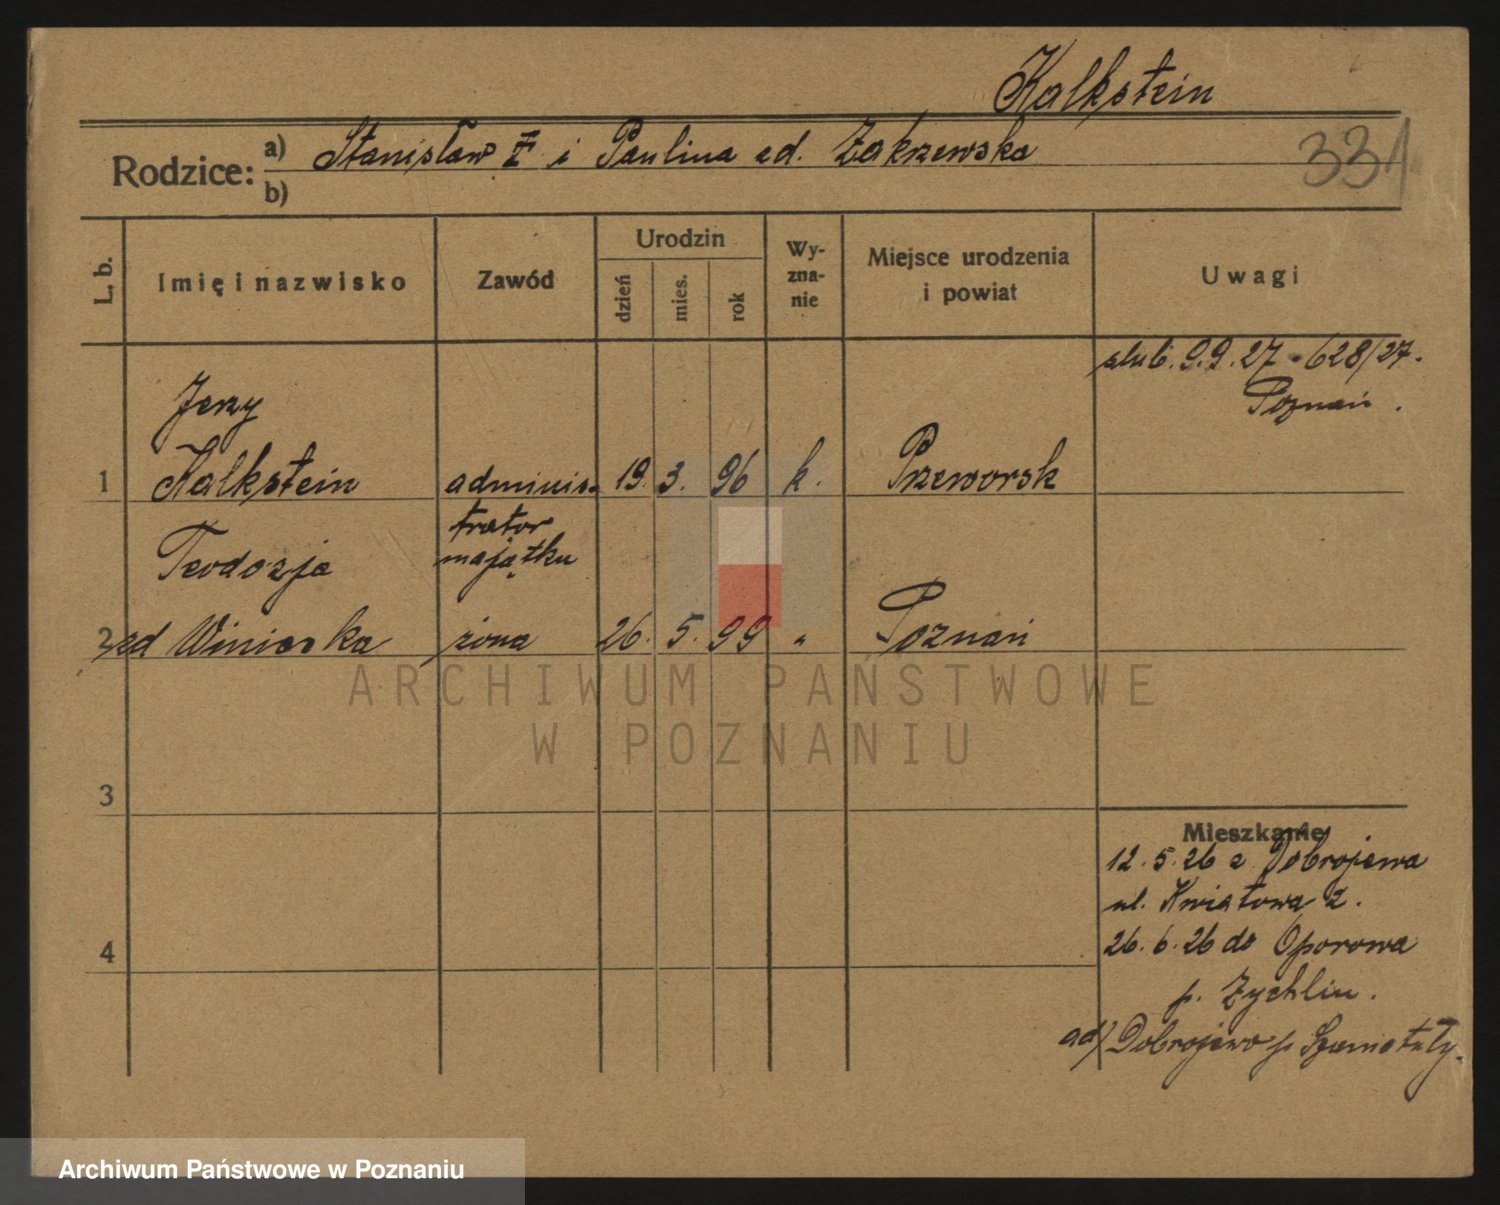 Kalkstein
331
Rodzice: a) Stanisław i Paulina zd. Zakrzewska
b)
L. b.
Imię i nazwisko
Zawód
Urodzin
dzień
mies.
rok
Wy-
zna-
nie
Miejsce urodzenia
i powiat
Uwagi
ślub. 9.9.27 - 628/27.
Poznań.
Jerzy
1 Kalkstein adminis- 19. 3. 96 k. Przeworsk
trator
majątku
Teodozja
2 zd Winiecka żona 26. 5. 99 " Poznań
3
4
Mieszkanie
12.5.26 z Dobrojewa
ul. Kwiatowa 2.
26.6.26 do Oporowa
p. Żychlin.
ad) Dobrojewo p Szamotuły.
ARCHIWUM PAŃSTWOWE
W POZNANIU
Archiwum Państwowe w Poznaniu